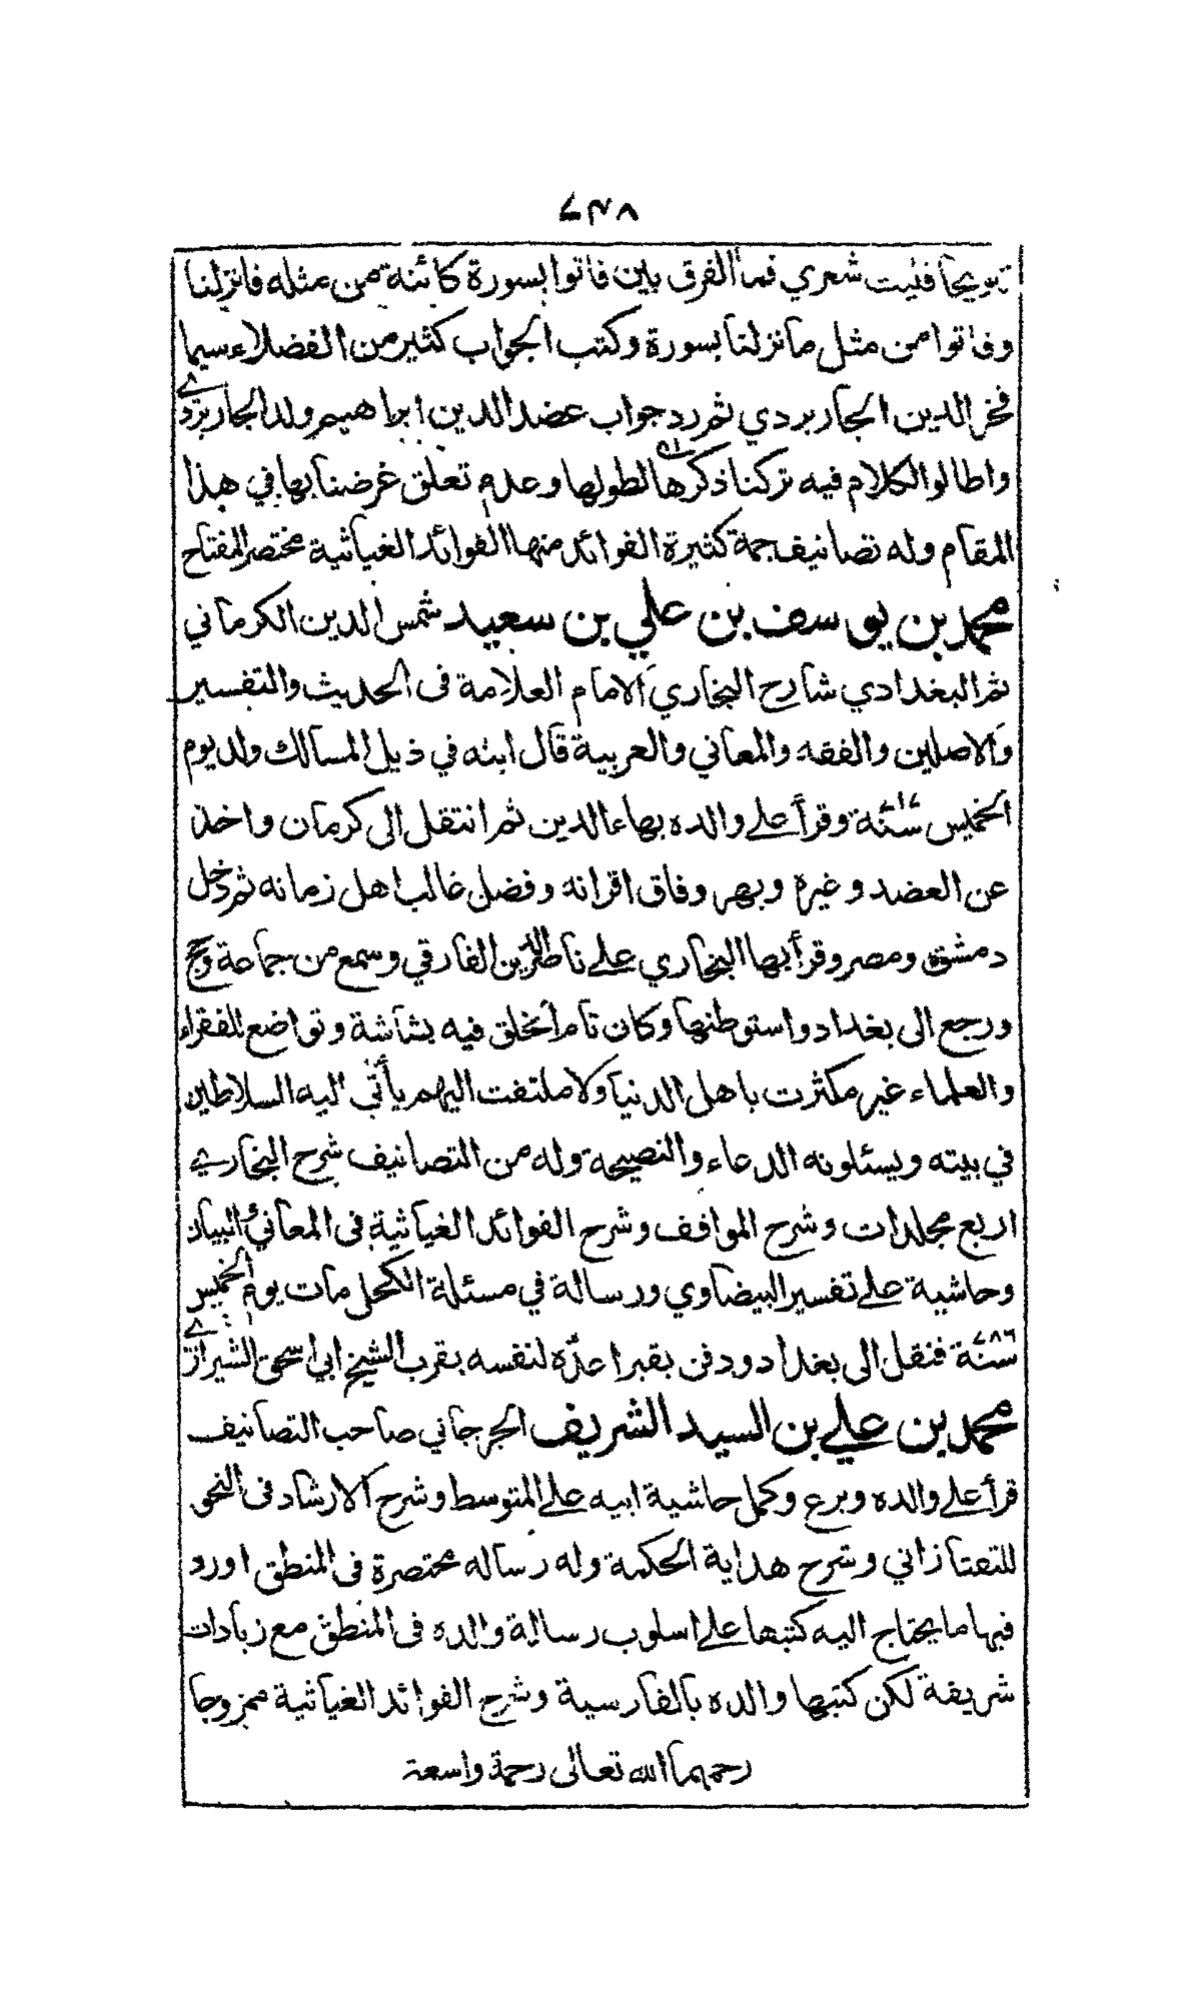 ٧٣٨
ترويحا فليت شعري فما الفرق بين فاتوا بسورة كائنة من مثله فانزلنا
وفاتوا من مثل ما نزلنا بسورة وكتب الجواب كثير من الفضلاء سيما
فخر الدين الجاربردي ثم رد جواب عضد الدين ابراهيم ولد الجاربردي
واطالوا الكلام فيه تركنا ذكرها لطولها وعدم تعلق غرضنا بها في هذا
المقام وله تصانيف جمة كثيرة الفوائد منها الفوائد الغياثية مختصر المفتاح
محمد بن يوسف بن علي بن سعيد شمس الدين الكرماني
ثم البغدادي شارح البخاري الامام العلامة فى الحديث والتفسير
والاصلين والفقه والمعاني والعربية قال ابنه في ذيل المسالك ولد يوم
الخميس سنة ٧١٧ وقرأ على والده بهاء الدين ثم انتقل الى كرمان واخذ
عن العضد وغيره وبهر وفاق اقرانه وفضل غالب اهل زمانه ثم دخل
دمشق ومصر وقرأ بها البخاري على ناصر الدين الفارقي وسمع من جماعة وحج
ورجع الى بغداد واستوطنها وكان تام الخلق فيه بشاشة وتواضع للفقراء
والعلماء غير مكثرت باهل الدنيا ولا ملتفت اليهم يأتي اليه السلاطين
في بيته ويسئلونه الدعاء والنصيحة وله من التصانيف شرح البخاري
اربع مجلدات وشرح المواقف وشرح الفوائد الغياثية فى المعاني والبيان
وحاشية على تفسير البيضاوي ورسالة في مسئلة الكحل مات يوم الخميس
سنة ٧٨٦ فنقل الى بغداد ودفن بقبر اعده لنفسه بقرب الشيخ ابي اسحق الشيرازي
محمد بن علي بن السيد الشريف الجرجاني صاحب التصانيف
قرأ على والده وبرع وكمل حاشية ابيه على المتوسط وشرح الارشاد فى النحو
للتفتازاني وشرح هداية الحكمة وله رسالة مختصرة فى المنطق اورد
فيها ما يحتاج اليه كتبها على اسلوب رسالة والده فى المنطق مع زيادات
شريفة لكن كتبها والده بالفارسية وشرح الفوائد الغياثية ممزوجا
رحمهما الله تعالى رحمة واسعة